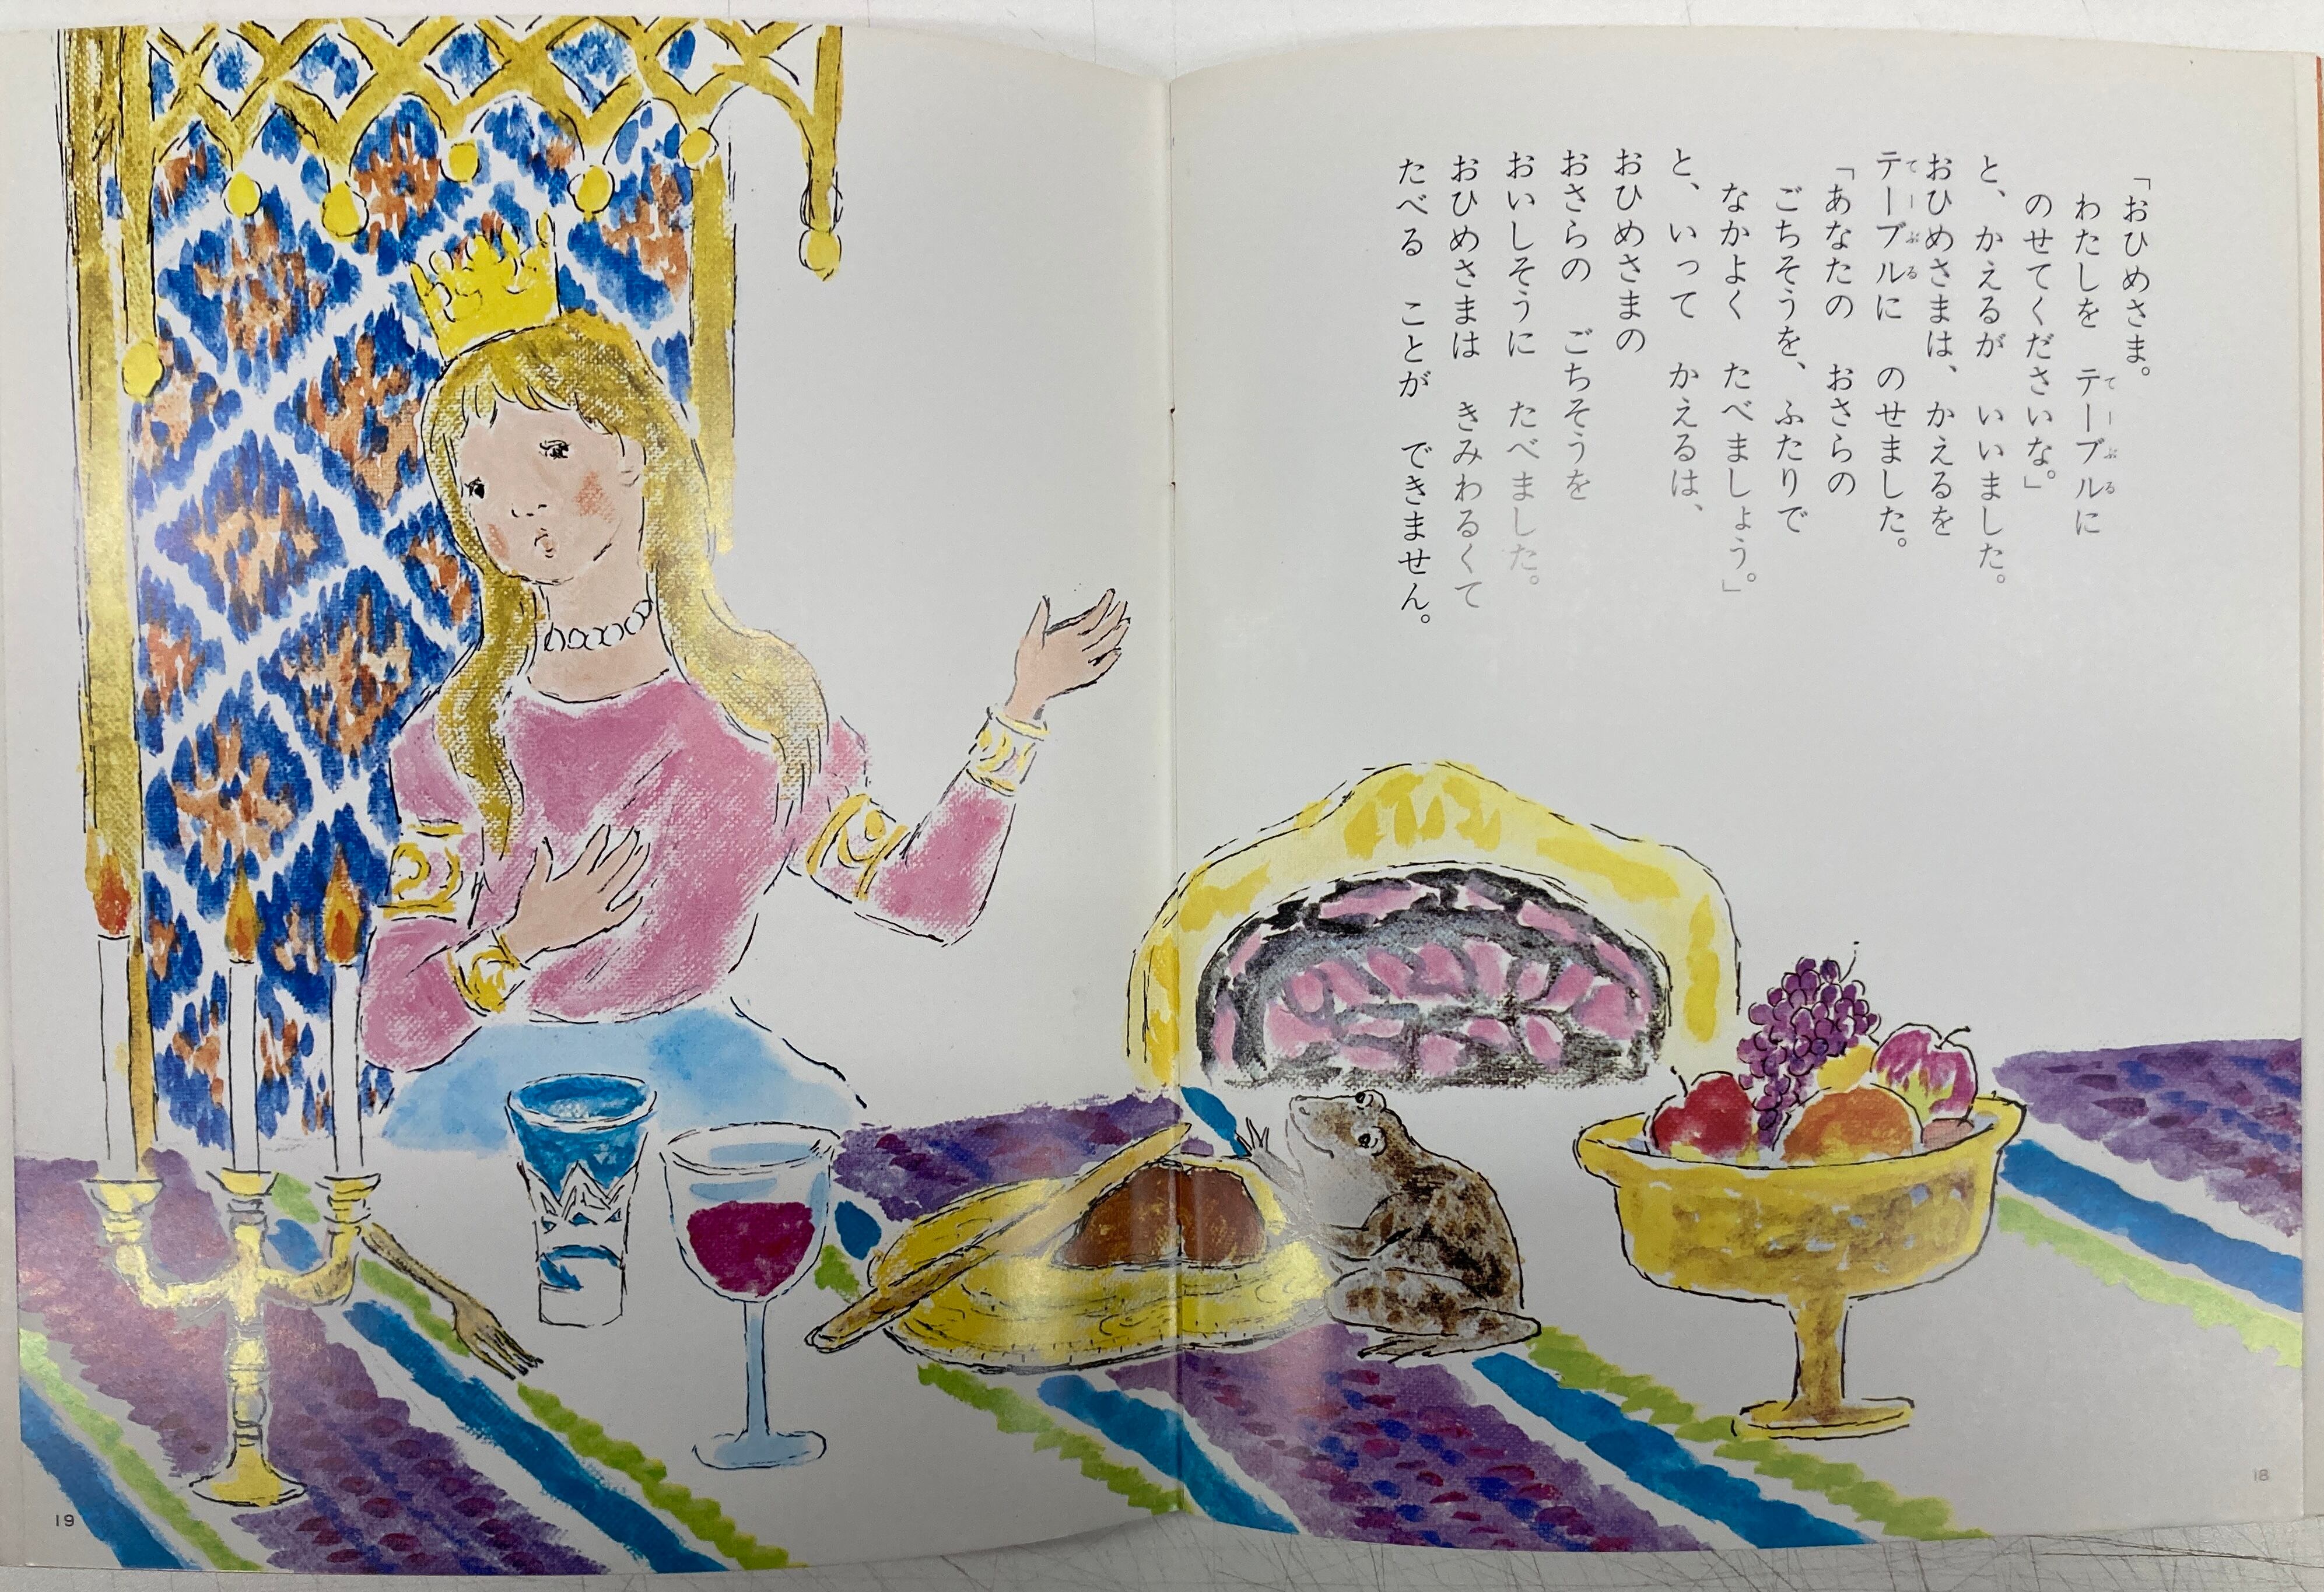 「おひめさま。
わたしを　テーブルに
のせてくださいな。」
と、かえるが　いいました。
おひめさまは、かえるを
テーブルに　のせました。
「あなたの　おさらの
ごちそうを、ふたりで
なかよく　たべましょう。」
と、いって　かえるは、
おひめさまの
おさらの　ごちそうを
おいしそうに　たべました。
おひめさまは　きみわるくて
たべる　ことが　できません。
18
19